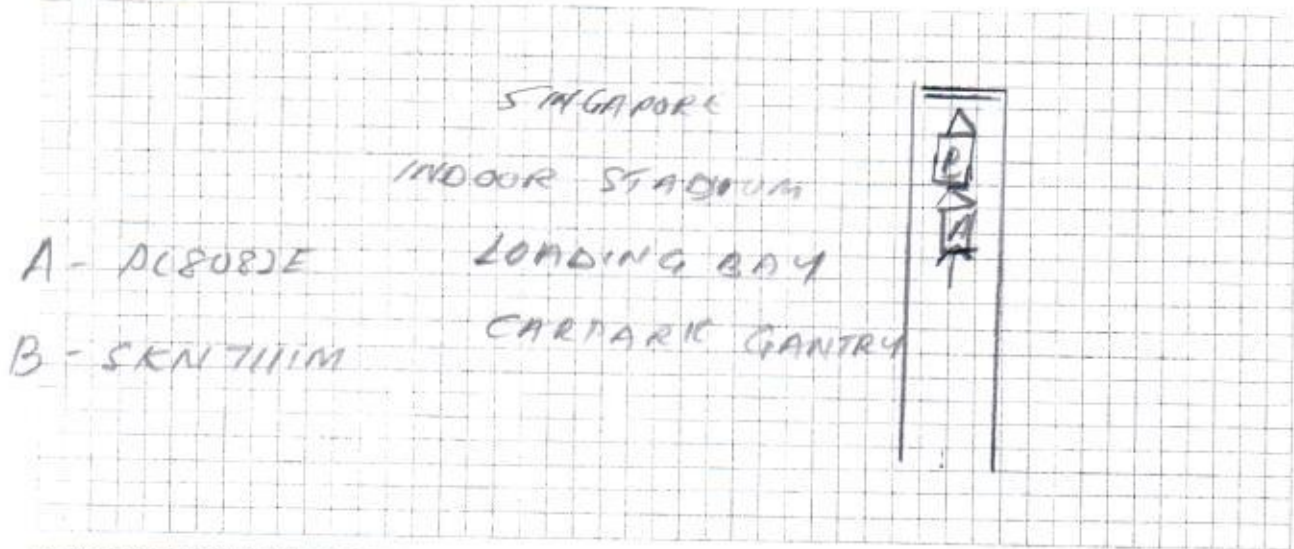 SINGAPORE
INDOOR STADIUM
A - PC8082E
LOADING BAY
B - SKN7111M
CARPARK GANTRY
B
A